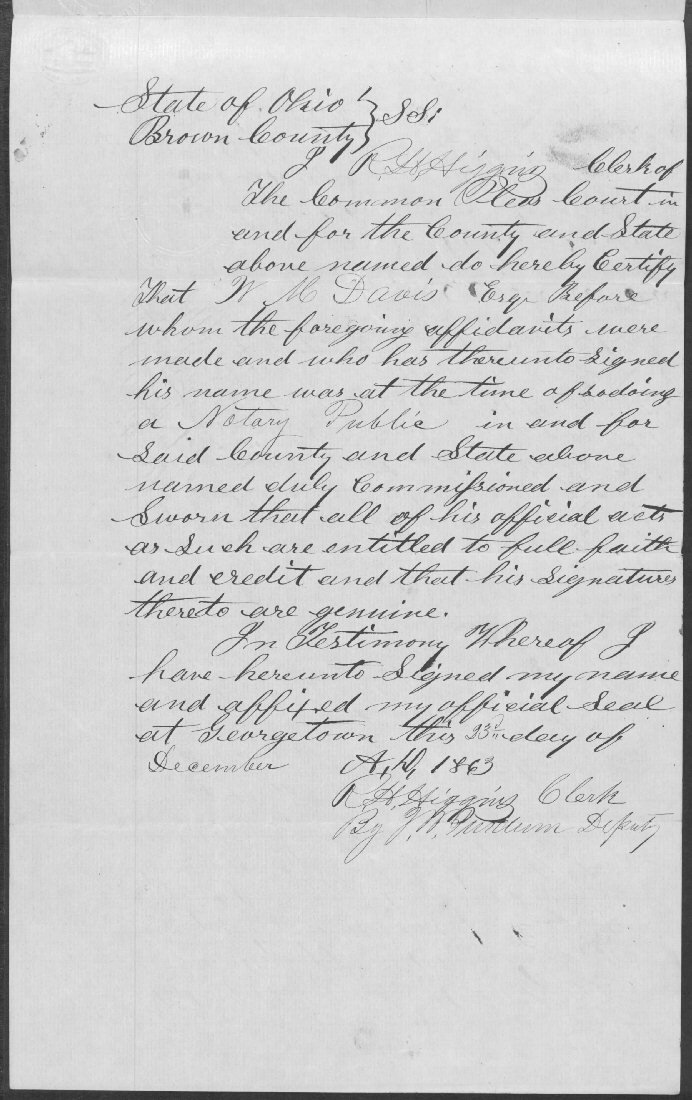 State of Ohio } SS:
Brown County
I R. H. Higgins Clerk of
The Common Pleas Court in
and for the County and State
above named do hereby Certify
That W M Davis Esq. Before
whom the foregoing affidavits were
made and who has thereunto Signed
his name was at the time of so doing
a Notary Public in and for
Said County and State above
named duly Commissioned and
Sworn that all of his official acts
as Such are entitled to full faith
and credit and that his Signatures
thereto are genuine.
In Testimony Whereof I
have hereunto Signed my name
and affixed my official Seal
at Georgetown this 23d day of
December A.D. 1863
R. H. Higgins Clerk
By J. Deputy